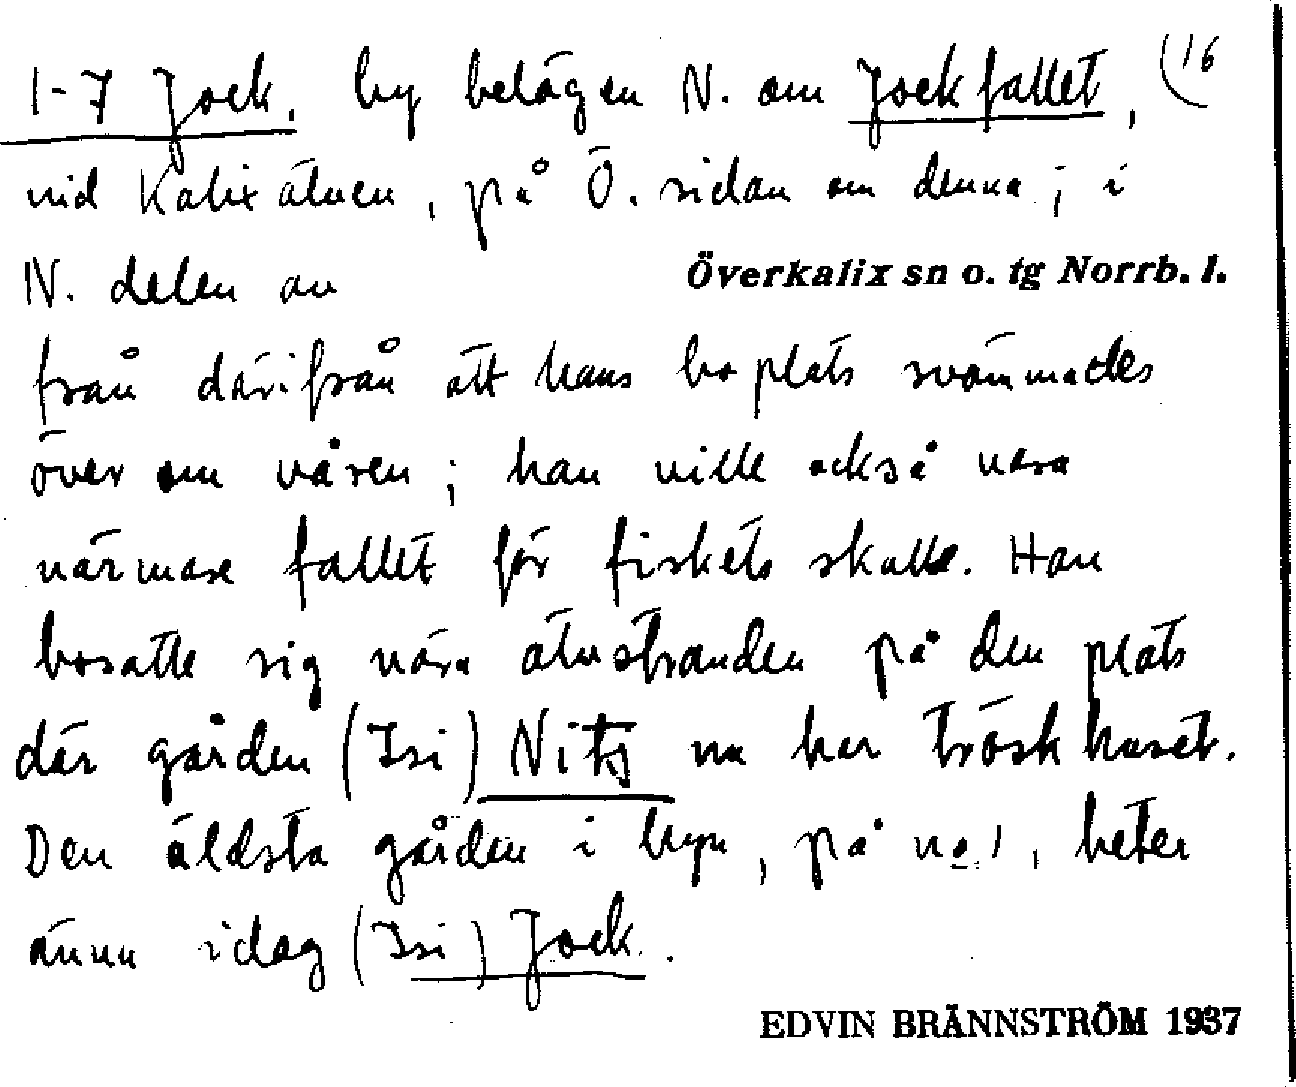 1-7 Jock. by belägen N. om Jockfallet, (16
vid Kalixälven, på Ö. sidan om denna; i
N. delen av Överkalix sn o. tg Norrb. l.
från därifrån att hans boplats svämmades
över om våren; han ville också vara
närmare fallet för fiskets skull. Han
bosatte sig nära älvstranden på den plats
där gården (Isi) Nitj nu har tröskhuset.
Den äldsta gården i byn, på no 1, heter
ännu idag (Isi) Jock.
EDVIN BRÄNNSTRÖM 1937